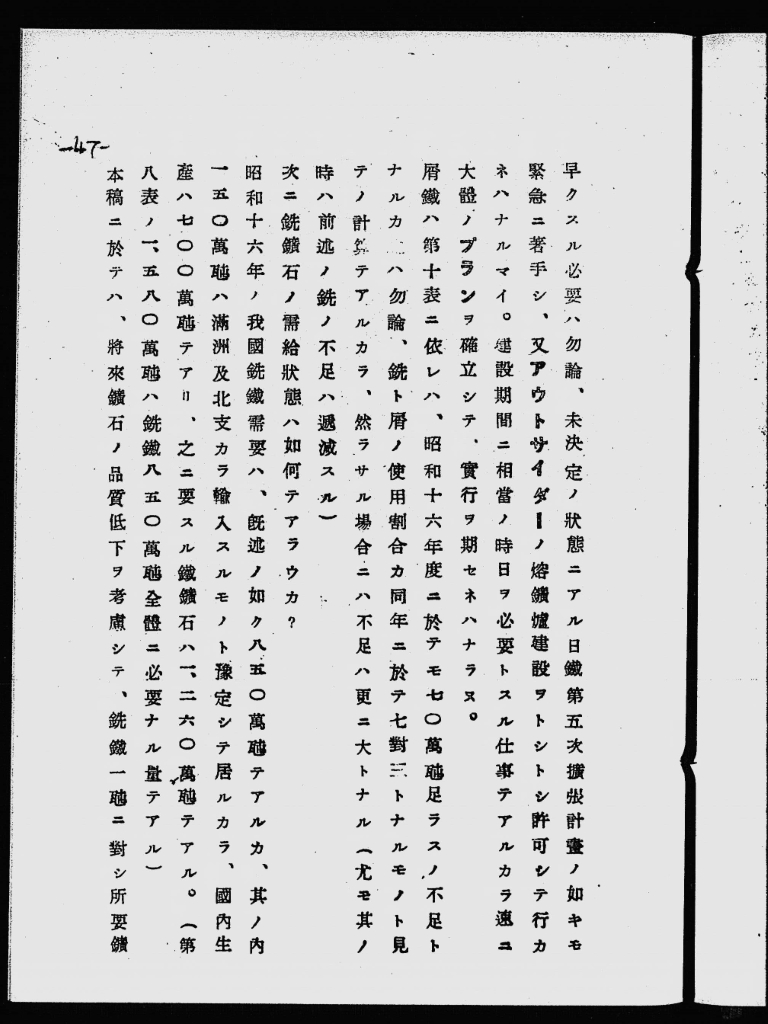 早クスル必要ハ勿論、未決定ノ狀態ニアル日鐵第五次擴張計畫ノ如キモ
緊急ニ著手シ、又アウトサイダーノ熔鑛爐建設ヲトシトシ許可シテ行カ
ネハナルマイ。建設期間ニ相當ノ時日ヲ必要トスル仕事テアルカラ速ニ
大體ノプランヲ確立シテ、實行ヲ期セネハナラヌ。
屑鐵ハ第十表ニ依レハ、昭和十六年度ニ於テモ七〇萬瓲足ラスノ不足ト
ナルカ ハ勿論、銑ト屑ノ使用割合カ同年ニ於テ七對三トナルモノト見
テノ計算テアルカラ、然ラサル場合ニハ不足ハ更ニ大トナル（尤モ其ノ
時ハ前述ノ銑ノ不足ハ遞減スル）
次ニ銑鑛石ノ需給狀態ハ如何テアラウカ？
昭和十六年ノ我國銑鐵需要ハ、旣述ノ如ク八五〇萬瓲テアルカ、其ノ內
一五〇萬瓲ハ滿洲及北支カラ輸入スルモノト豫定シテ居ルカラ、國內生
產ハ七〇〇萬瓲テアリ、之ニ要スル鐵鑛石ハ一、二六〇萬瓲テアル。（第
八表ノ一、五八〇萬瓲ハ銑鐵八五〇萬瓲全體ニ必要ナル量テアル）
本稿ニ於テハ、將來鑛石ノ品質低下ヲ考慮シテ、銑鐵一瓲ニ對シ所要鑛
-47-